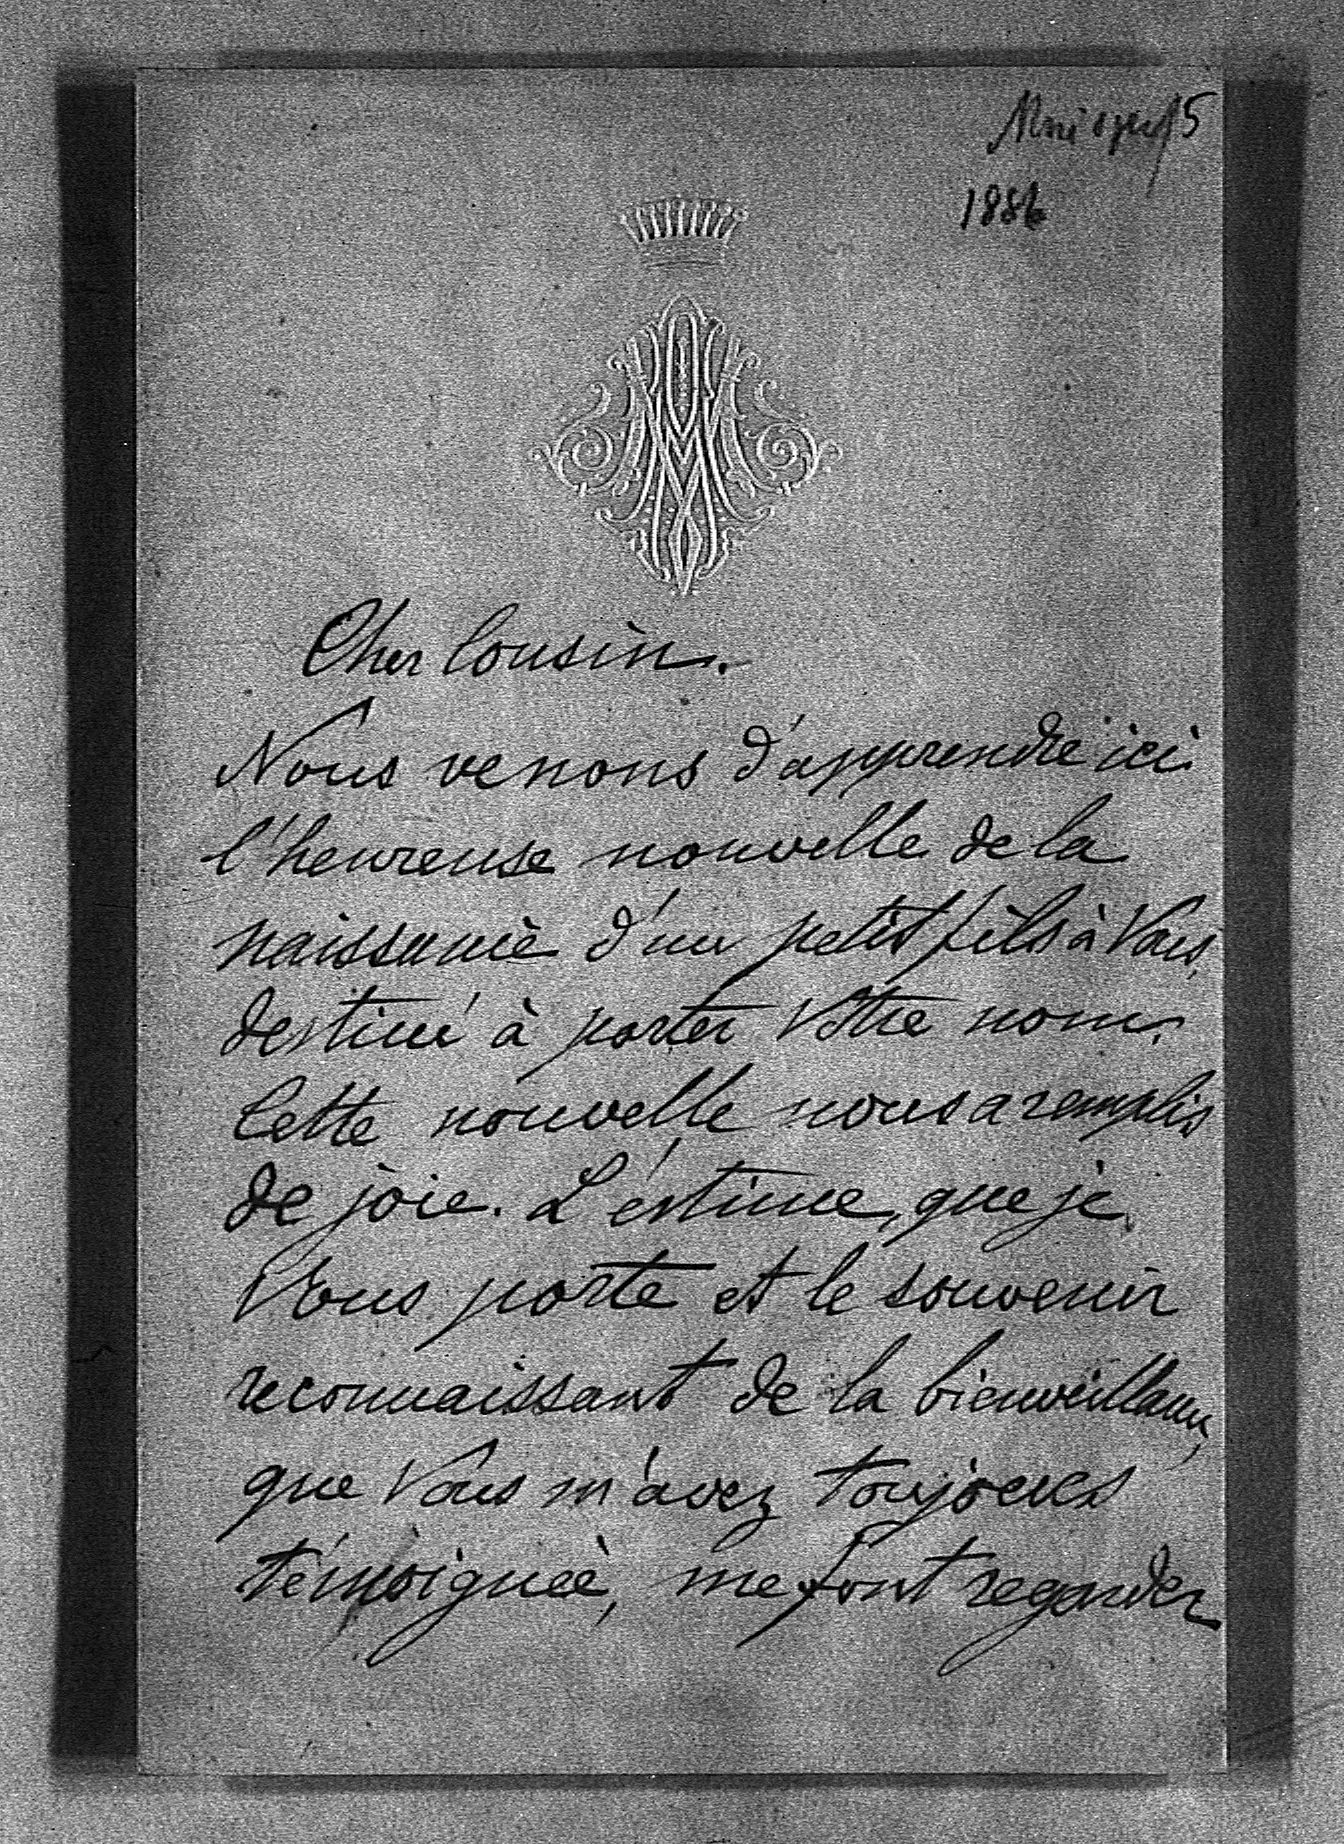 15
1886
Cher Cousin.
Nous venons d'apprendre ici
l'heureuse nouvelle de la
naissance d'un petit fils à Vous,
destiné à porter Votre nom.
Cette nouvelle nous a remplis
de joie. L'éstime, que je
Vous porte et le souvenir
reconnaissant de la bienveillance,
que Vous m'avez toujours
témoignée, me font regarder